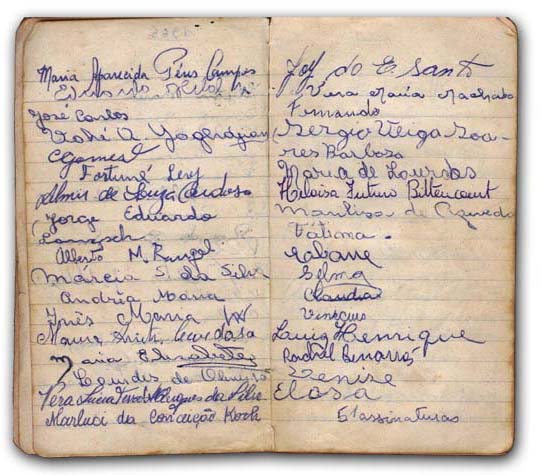 Maria Aparecida Pérís Campos
José Carlos
A. Yaghdjian
Gomes
Fortuné Levy
Almir de Souza Cardoso
Jorge Eduardo
Alberto M. Rangel
Márcia S. da Silva
Andréa Maria
Inês Maria
Maria Elisabete
Lourdes de
Vera Lucia Marques da Silva
Marluci da Conceição Koch
Joy do E. Santo
Vera Maria Machado
Fernando
Sergio Veiga Soa-
res Barbosa
Maria de Lourdes
Heloisa Futuro Bittencourt
Mariluza de Azevedo
Fátima.
Rabane
Selma
Claudia
Vinicius
Luiz Henrique
Rachel
Denise
Elosa
51 assinaturas